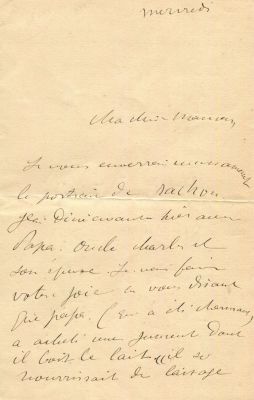 mercredi
Ma chère Maman,
Je vous enverrai incessamment
le portrait de Rachou
j'ai diné hier avec
Papa. Oncle Charles et
son épouse. Je vous ferai
votre joie en vous disant
que papa. (En a été charmant)
a acheté une jument dont
il boit le lait, il se
nourrissait de laitage